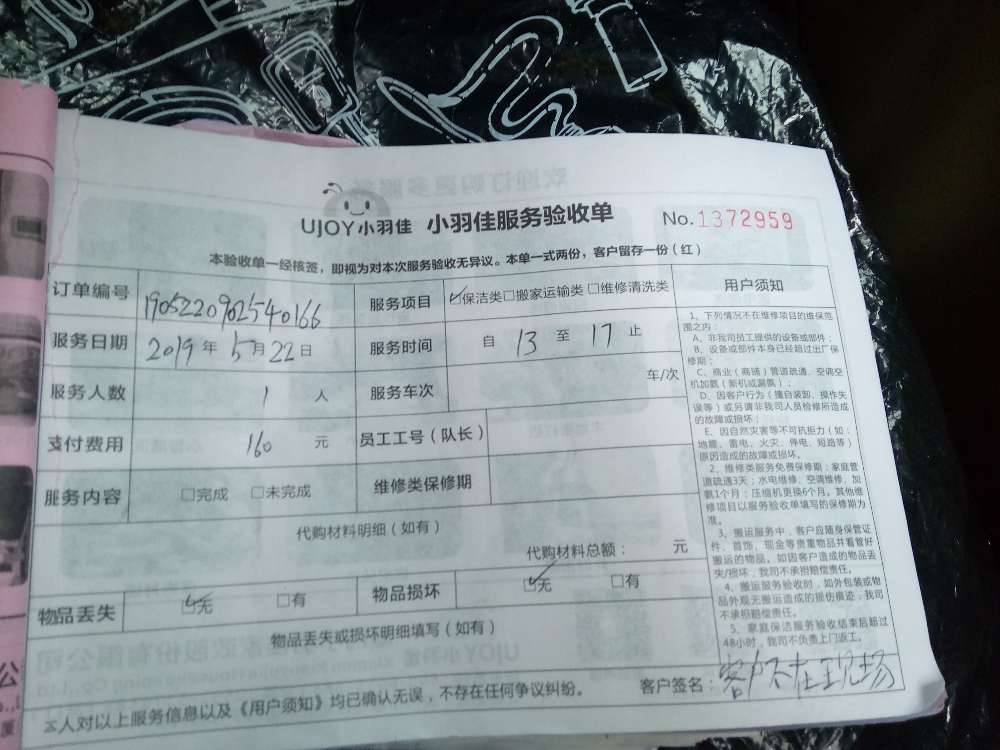 UJOY小羽佳 小羽佳服务验收单 No.1372959
本验收单一经核签，即视为对本次服务验收无异议。本单一式两份，客户留存一份（红）
订单编号 1905220902540166 服务项目 ☑保洁类□搬家运输类□维修清洗类
服务日期 2019年5月22日 服务时间 自 13 至 17 止
服务人数 1 人 服务车次 车/次
支付费用 160 元 员工工号（队长）
服务内容 □完成 □未完成 维修类保修期
代购材料明细（如有）
代购材料总额： 元
物品丢失 ☑无 □有 物品损坏 ☑无 □有
物品丢失或损坏明细填写（如有）
本人对以上服务信息以及《用户须知》均已确认无误，不存在任何争议纠纷。 客户签名：客户不在现场
用户须知
1、下列情况不在维修项目的维保范
围之内：
A、非我司员工提供的设备或部件；
B、设备或部件本身已经超过出厂保
修期；
C、商业（商铺）管道疏通、空调空
机加氨（新机或漏氨）；
D、因客户行为（擅自装卸、操作失
误等）或另请非我司人员检修所造成
的故障或损坏；
E、因自然灾害等不可抗拒力（如：
地震、雷电、火灾、停电、短路等）
原因造成的故障或损坏。
2、维修类服务免费保修期：家庭管
道疏通3天；水电维修、空调维修、加
氨1个月；压缩机更换6个月。其他维
修项目以服务验收单填写的保修期为
准。
3、搬运服务中，客户应随身保管证
件、首饰、现金等贵重物品并看管好
搬运的物品。如因客户造成的物品丢
失/损坏，我司不承担赔偿责任。
4、搬运服务验收时，如外包装或物
品外观无搬运造成的损伤痕迹，我司
不承担赔偿责任。
5、家庭保洁服务验收结束后超过
48小时，我司不负责上门返工。